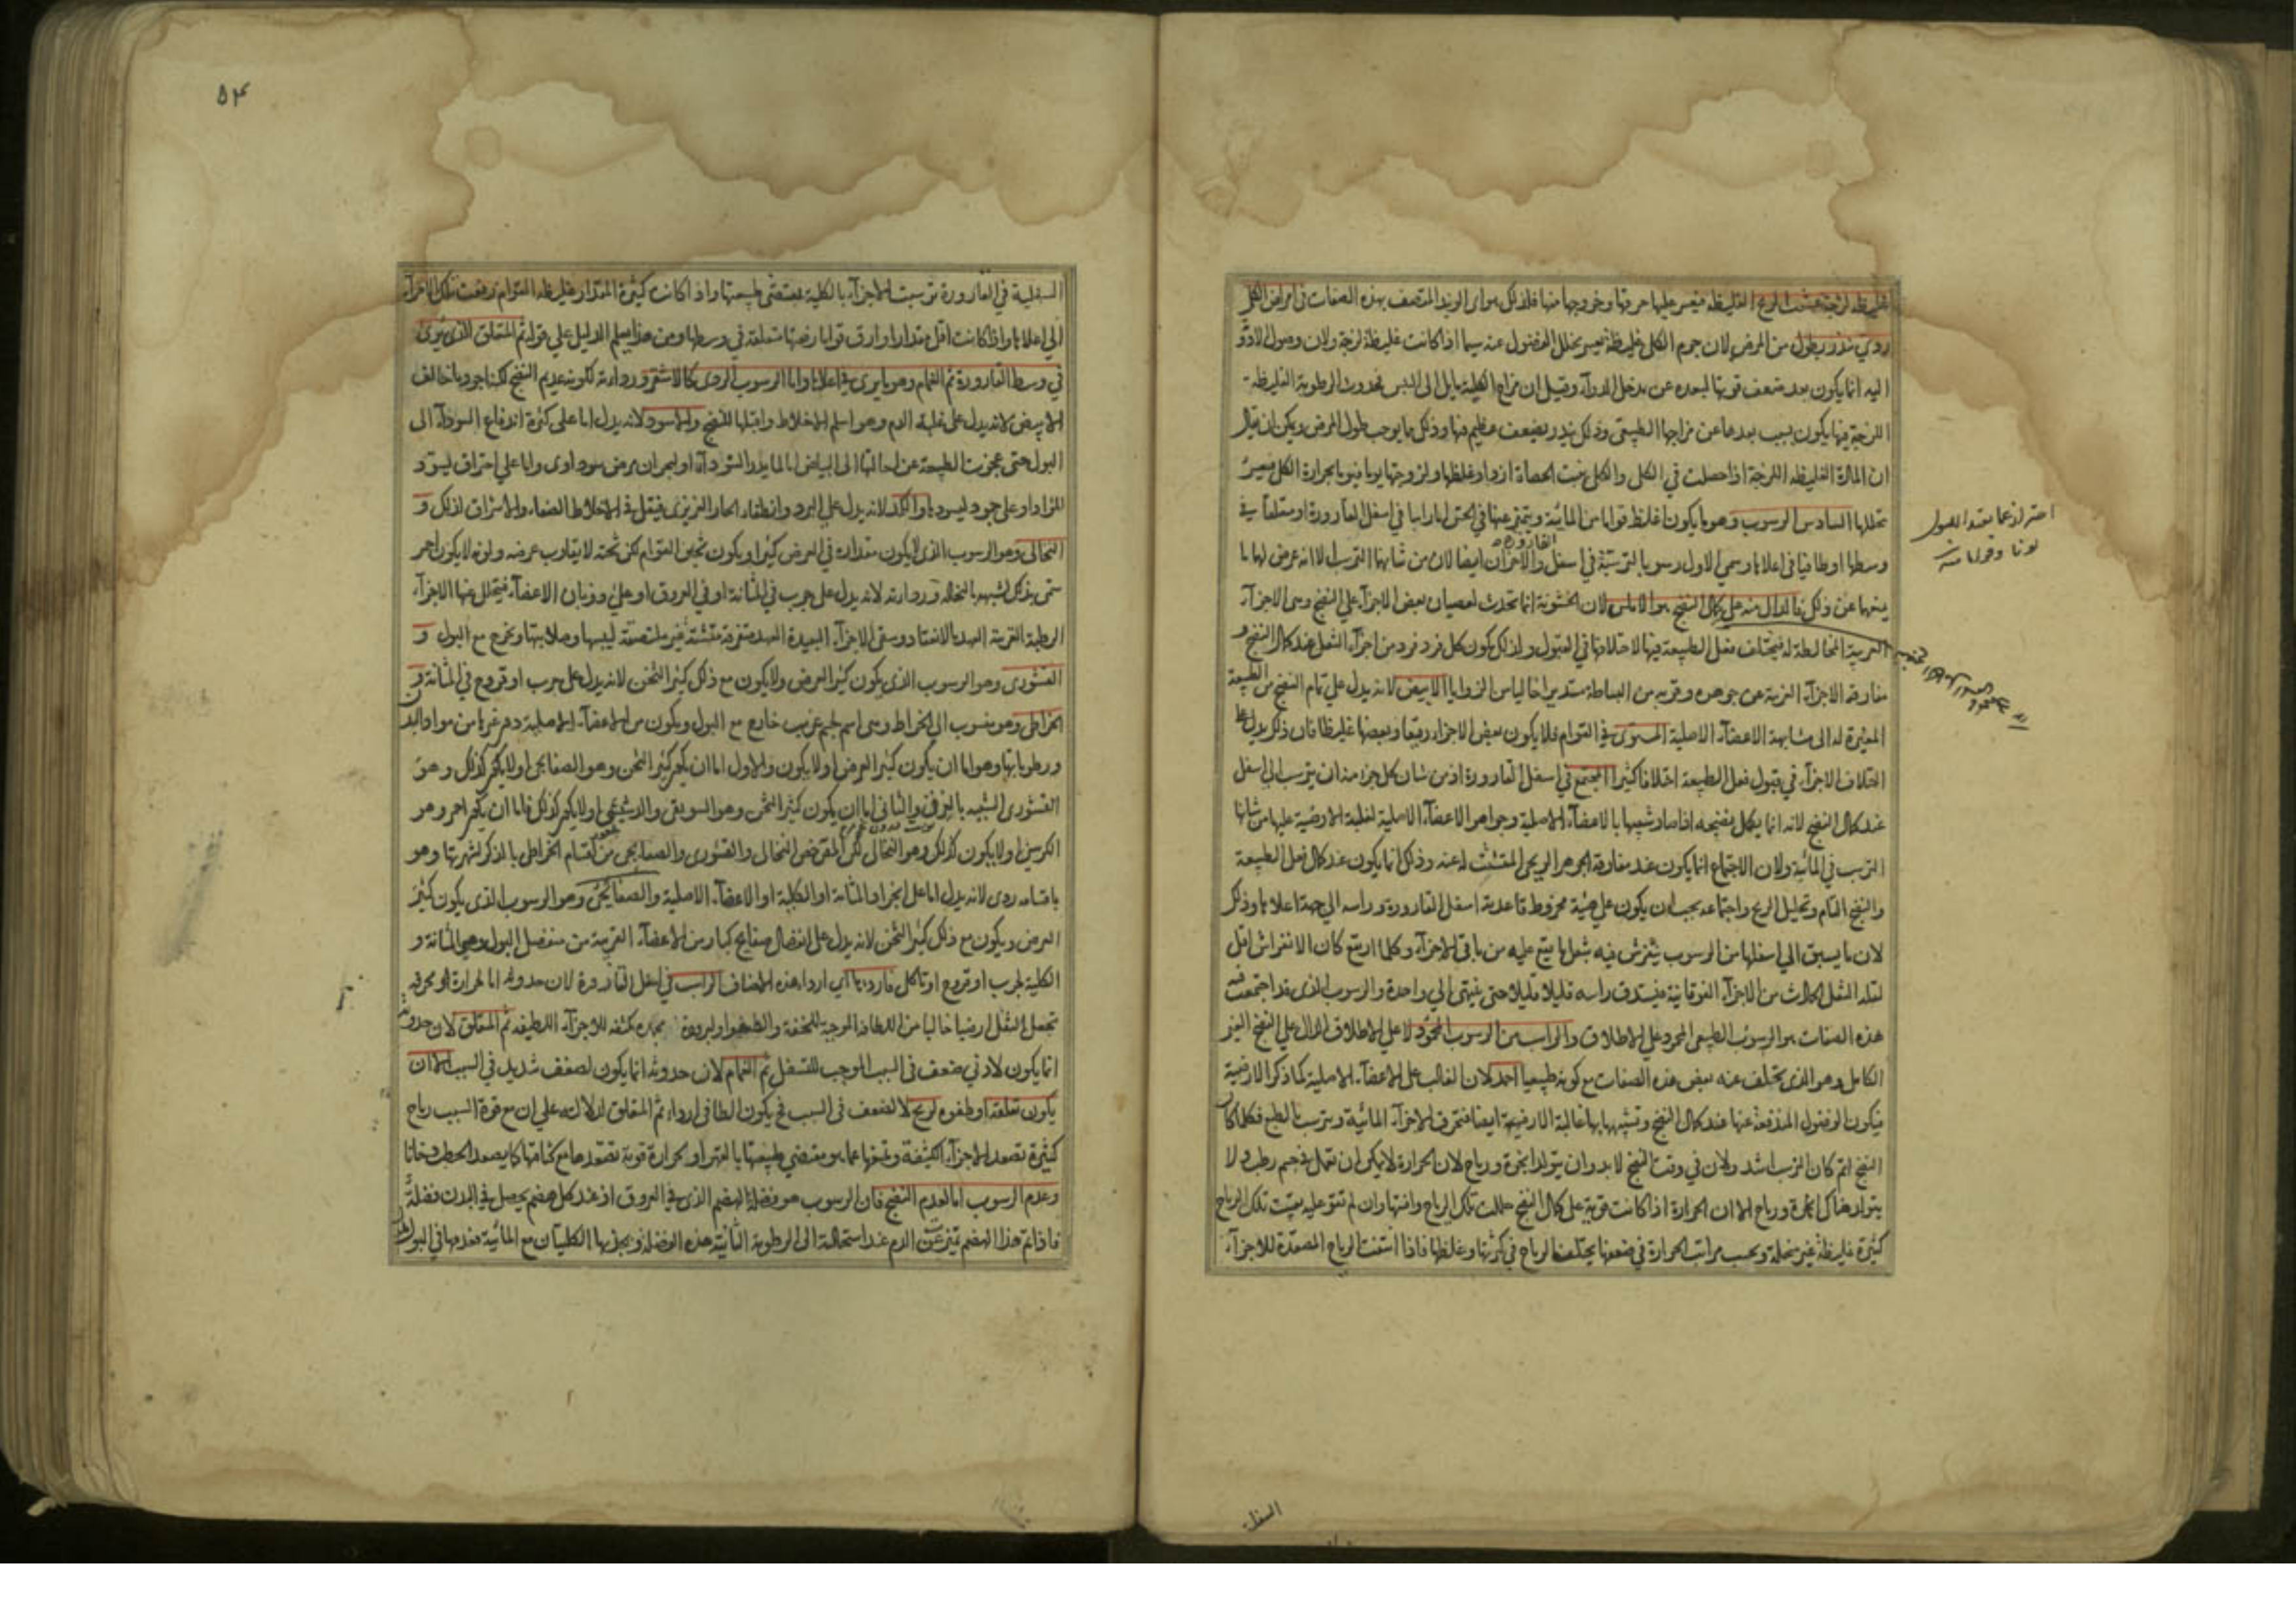 الغليظة لزجة عسرت الريح الغليظة فيعسر عليها خرقها وخروجها منها فلذلك
ردي منذر بطول من المرض لان جرم الكلى غليظة فيعسر تحلل الفضول عنه سيما اذا كانت غليظة لزجة ولان وصول الادوية
اليه انما يكون بعد ضعف قوتها لبعده عن مدخل الدواء وقيل ان مزاج الكلية مايل الى اليبس فحدوث الرطوبة الغليظة
اللزجة فيها يكون بسبب بعدها عن مزاجها الطبيعي وذلك ينذر بضعف عظيم فيها وذلك ما يوجب طول المرض ويمكن ان يقال
ان المادة الغليظة اللزجة اذا حصلت في الكلى والكلى منبت الحصاة ازداد غلظها ولزوجتها يوما فيوما بحرارة الكلى فيعسر
تحللها السادس الرسوب وهو ما يكون اغلظ قواما من المائية ويتميز عنها في الحس اما راسبا في اسفل القارورة او متعلقا في
القارورة
وسطها او طافيا في اعلاها وسمي الاول رسوبا لترسبه في اسفل والاخران ايضا لان من شانهما الترسب الا انه عرض لهما ما
يمنعها عن ذلك فالدال منه على كمال النضج هو الاملس لان الخشونة انما تحدث لعصيان بعض الاجزاء على النضج وهي الاجزاء
الغريبة المخالطة له فيختلف فعل الطبيعة فيها لاختلافها في القبول ولذلك يكون كل فرد فرد من اجزاء الثفل عند كمال النضج و
مفارقة الاجزاء الغريبة عن جوهره وقربه من البساطة مستديرا خاليا من الزوايا الابيض لانه يدل على تمام النضج من الطبيعة
المغيرة له الى مشابهة الاعضاء الاصلية المستوي في القوام فلا يكون بعض الاجزاء رقيقا وبعضها غليظا فان ذلك يدل على
اختلاف الاجزاء في قبول فعل الطبيعة اختلافا كثيرا المجتمع في اسفل القارورة اذ من شان كل جزء منه ان يترسب الى اسفل
عند كمال النضج لانه انما يكمل نضجه اذا صار شبيها بالاعضاء الاصلية وجواهر الاعضاء الاصلية لغلبة الارضية عليها من شانها
الترسب في المائية ولان الاجتماع انما يكون عند مفارقة الجوهر الريحي المشتت له عنه وذلك انما يكون عند كمال فعل الطبيعة
والنضج التام وتحليل الريح واجتماعه يجب ان يكون على هيئة مخروط قاعدته اسفل القارورة وراسه الى جهة اعلاها وذلك
لان ما يسبق الى اسفلها من الرسوب ينفرش فيه بثقل ما يقع عليه من باقي الاجزاء وكلما ارتفع كان الانفراش اقل
لقلة الثقل الحادث من الاجزاء الفوقانية فيستدق راسه قليلا قليلا حتى ينتهي الى واحدة والرسوب الذي قد اجتمعت فيه
هذه الصفات هو الرسوب الطبيعي المحمود على الاطلاق والراسب من الرسوب المحمود لا على الاطلاق الدال على النضج الغير
الكامل وهو الذي تختلف عنه بعض هذه الصفات مع كونه طبيعيا احمد لان الغالب على الاعضاء الاصلية كما ذكر الارضية
فيكون الفضول المندفعة عنها عند كمال النضج وتشبهها بها غالبة الارضية ايضا فتخرق الاجزاء المائية ويترسب بالطبع فكلما كان
النضج اتم كان الترسب اشد ولان في وقت النضج لا بد وان يتولد ابخرة ورياح لان الحرارة لا يمكن ان تعمل في جسم رطب ولا
يتولد هناك ابخرة ورياح الا ان الحرارة اذا كانت قوية على كمال النضج حللت تلك الرياح وافنتها وان لم تقو عليه بقيت تلك الرياح
كثيرة غليظة غير منحلة وبحسب مراتب الحرارة في ضعفها يختلف الرياح في كثرتها وغلظها فاذا انتفت الرياح المصعدة للاجزاء
احتراز عما يفيد الفضول
لونا وقواما منه
السفلية
٥٤
السفلية في القارورة ترسبت الاجزاء بالكلية بمقتضى طبيعتها واذا كانت كثيرة المقدار غليظة القوام رفعت تلك الاجزاء
الى اعلاها واذا كانت اقل مقدارا وارق قواما رفعتها متعلقة في وسطها ومن هذا يعلم الدليل على قوله ثم المتعلق الذي يرى
في وسط القارورة ثم الغمام وهو ما يرى في اعلاها واما الرسوب الردي كالاشقر ورداءته لكونه عديم النضج لكنه اجود ما خالف
الابيض لانه يدل على غلبة الدم وهو اسلم الاخلاط واقبلها للنضج والاسود لانه يدل اما على كثرة اندفاع السوداء الى
البول حتى عجزت الطبيعة عن احالتها الى البياض اما لمايدر السوداء او لبحران مرض سوداوي واما على احتراق ليسود
المواد او على جمود ليسودها والكمد لانه يدل على البرد وانطفاء الحار الغريزي فيقل في الاخلاط الصفاء والاشراق لذلك و
النخالي وهو الرسوب الذي لا يكون مقداره في العرض كثيرا ويكون ثخين القوام لكن ثخنه لا يقارب عرضه ولونه لا يكون احمر
سمي بذلك لشبهه بالنخالة ورداءته لانه يدل على جرب في المثانة او في العروق او على ذوبان الاعضاء فيتحلل عنها الاجزاء
الرطبة القريبة العهد بالانعقاد ويبقى الاجزاء البعيدة العهد متفرقة متشتتة غير ملتصقة ليبسها وصلابتها ويخرج مع البول و
القشوري وهو الرسوب الذي يكون كثير العرض ولا يكون مع ذلك كثير الثخن لانه يدل على جرب او قروح في المثانة و
الخراطي وهو منسوب الى الخراط وهي اسم لجسم غريب خارج مع البول ويكون من الاعضاء الاصلية دم غيرها من مواد البدن
ورطوباتها وهو اما ان يكون كثير العرض او لا يكون والاول اما ان يكون كثير الثخن وهو الصفايحي او لا يكون كذلك وهو
القشوري الشبيه بالخزف والثاني اما ان يكون كثير الثخن وهو السويقي والدشيشي او لا يكون كذلك فاما ان يكون احمر وهو
الكرسني او لا يكون كذلك وهو النخالي لكن المقرض النخالي والقشوري والصفايحي من اقسام الخراطي بالذكر لشهرتها وهو
باقسامه ردي لانه يدل اما على انجراد المثانة او الكلية او الاعضاء الاصلية والصفايحي وهو الرسوب الذي يكون كثير
العرض ويكون مع ذلك كثير الثخن لانه يدل على انفصال صفايح كبار من الاعضاء القريبة من منفصل البول وهي المثانة و
الكلية لجرب او قروح او تاكل فارداها اي اردا هذه الاصناف الراسب في اسفل القارورة لان حدوثه اما لحرارة محرقة
تجعل الثفل ارضيا خاليا من اللطافة الموجبة للخفة والطفو او لبرودة مجمدة مكثفة للاجزاء اللطيفة ثم المتعلق لان حدوثه
انما يكون لادنى ضعف في السبب الموجب للتسفل ثم الغمام لان حدوثه انما يكون لضعف شديد في السبب الا ان
يكون تعلقه او طفوه لريح لا لضعف في السبب فح يكون الطافي اردا ثم المتعلق لدلالته على ان مع قوة السبب رياح
كثيرة تصعد الاجزاء الكثيفة وتمنعها عما هو مقتضى طبيعتها بالقهر او لحرارة قوية تصعدها مع كثافتها كما يصعد الحطب دخانا
وعدم الرسوب اما لعدم النضج فان الرسوب هو فضلة الهضم الذي في العروق اذ عند كل هضم يحصل في البدن فضلة
فاذا تم هذا الهضم تميزت عن الدم عند استحالته الى الرطوبة الثانية هذه الفضلة ويجذبها الكليتان مع المائية فعدمها في البول